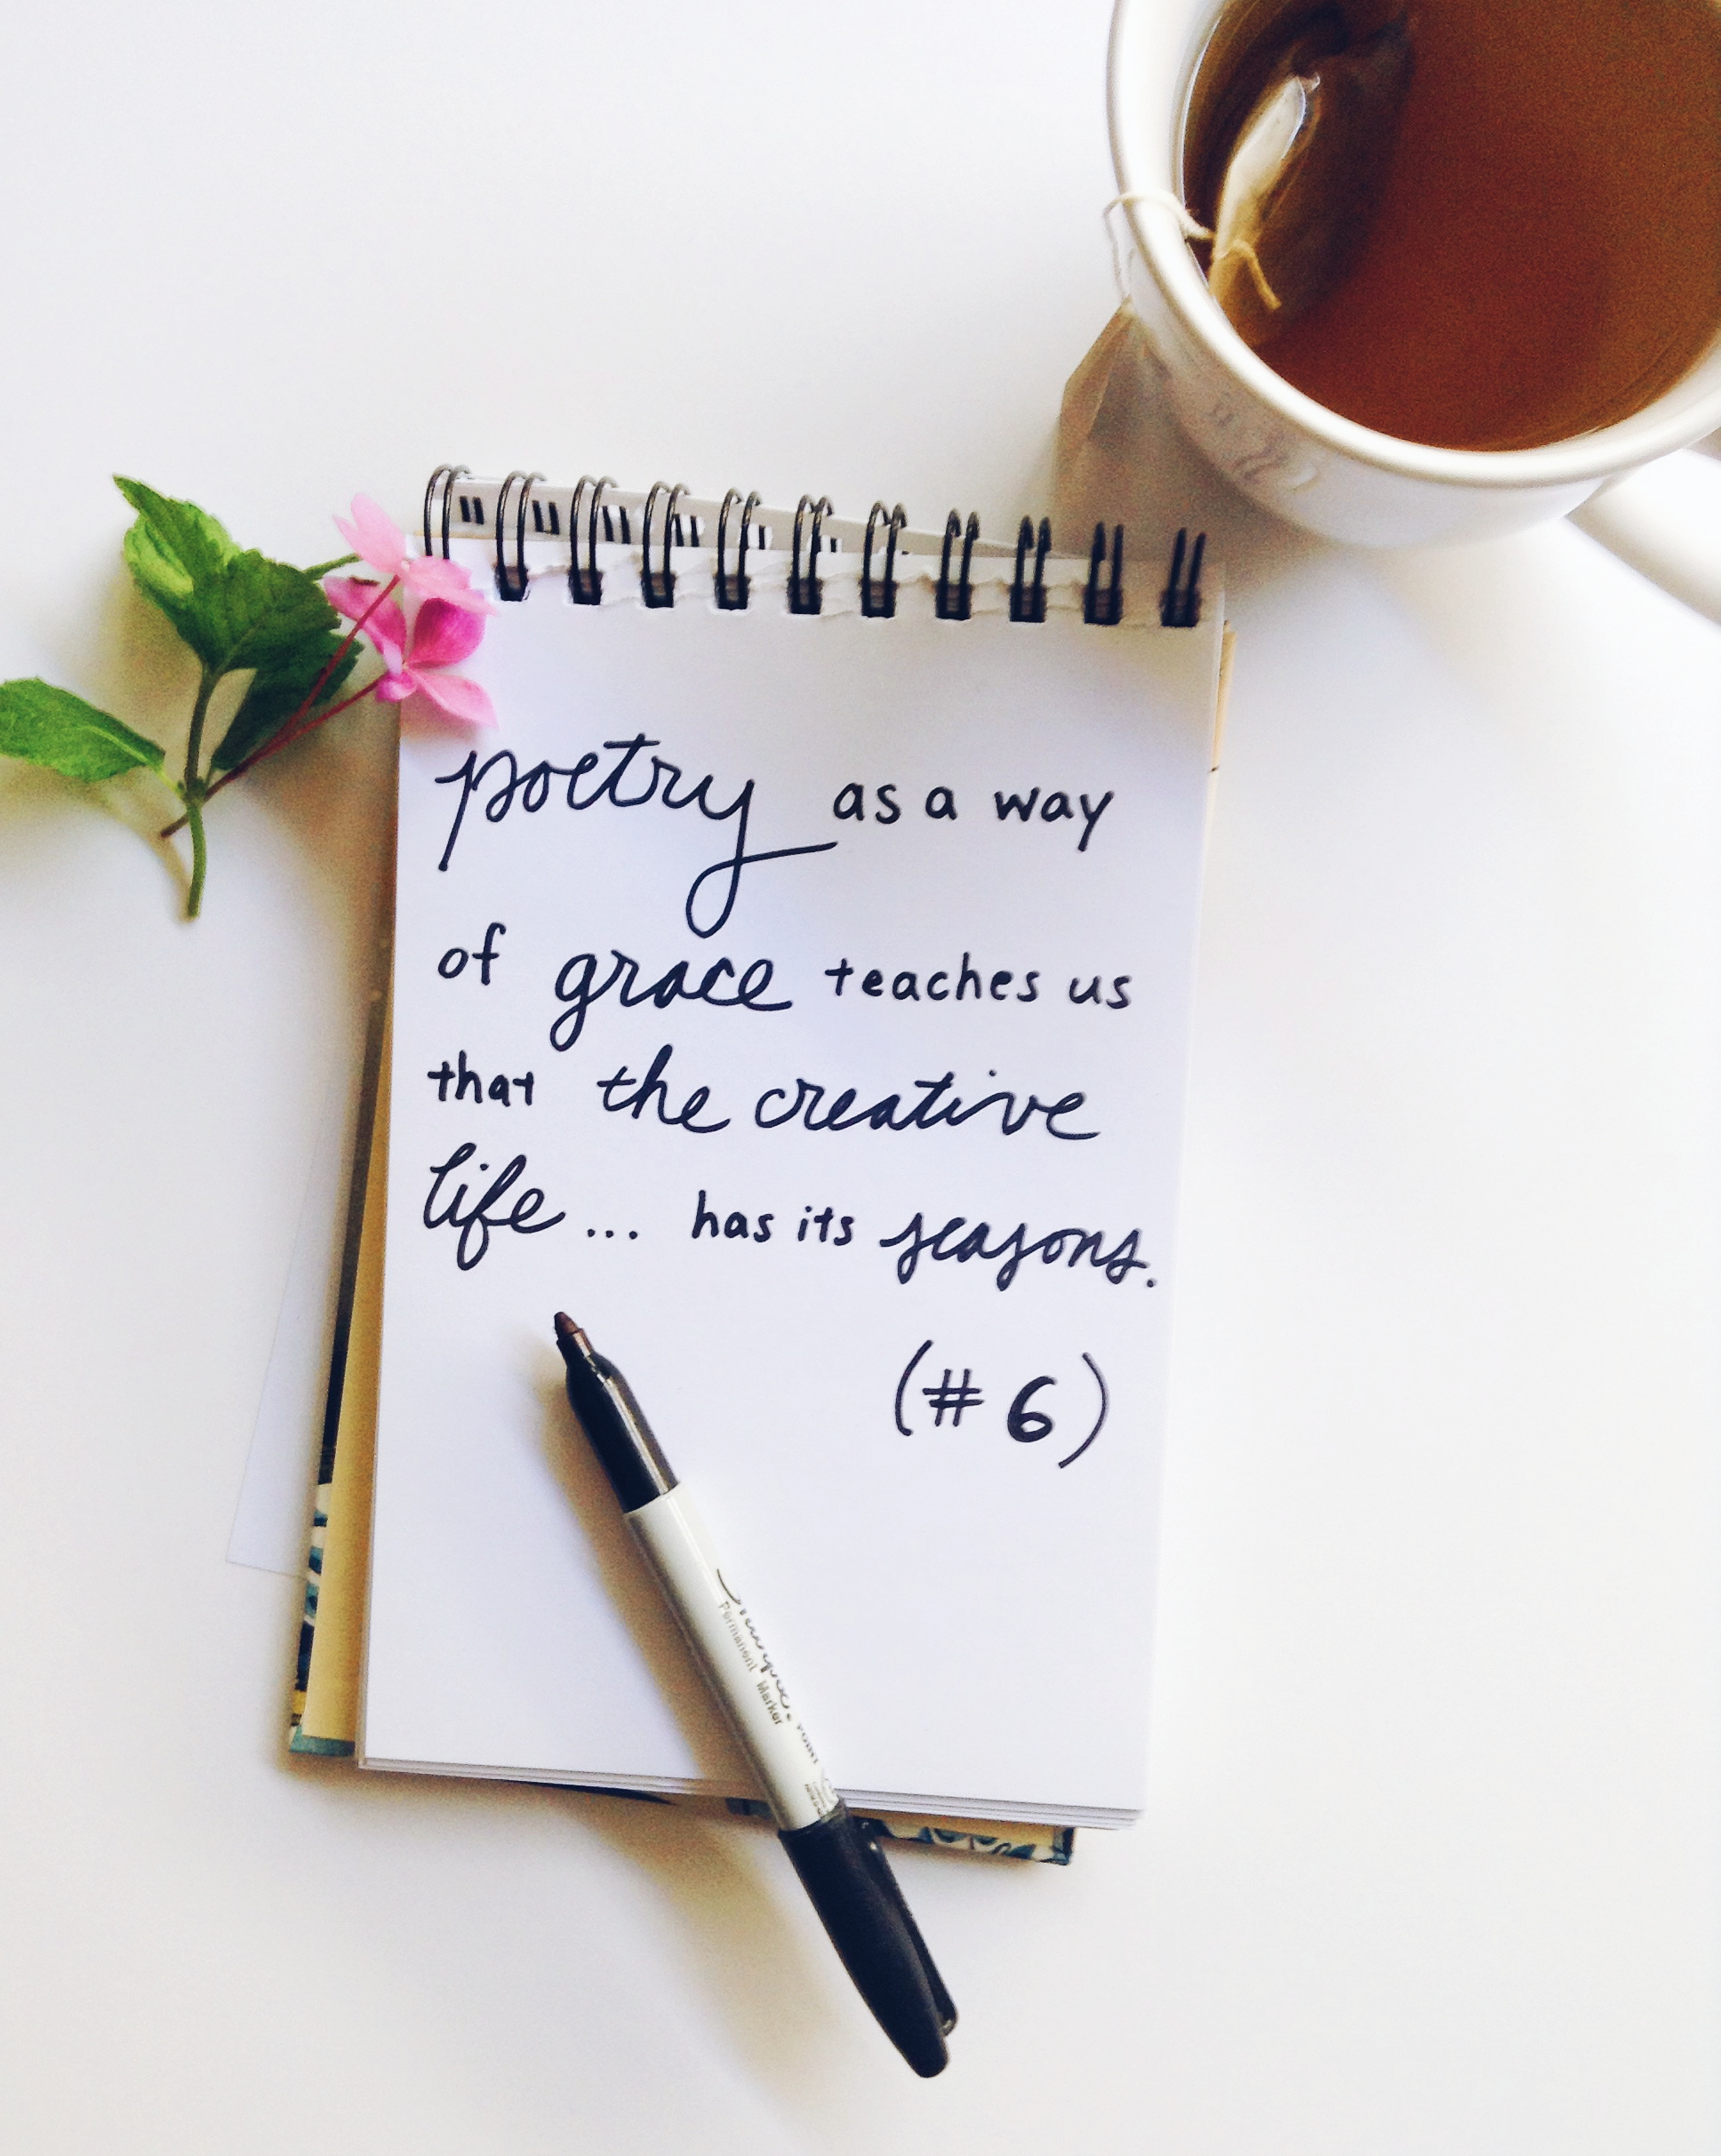 poetry as a way
of grace teaches us
that the creative
life... has its seasons.
(#6)
Sharpie.
Permanent Marker